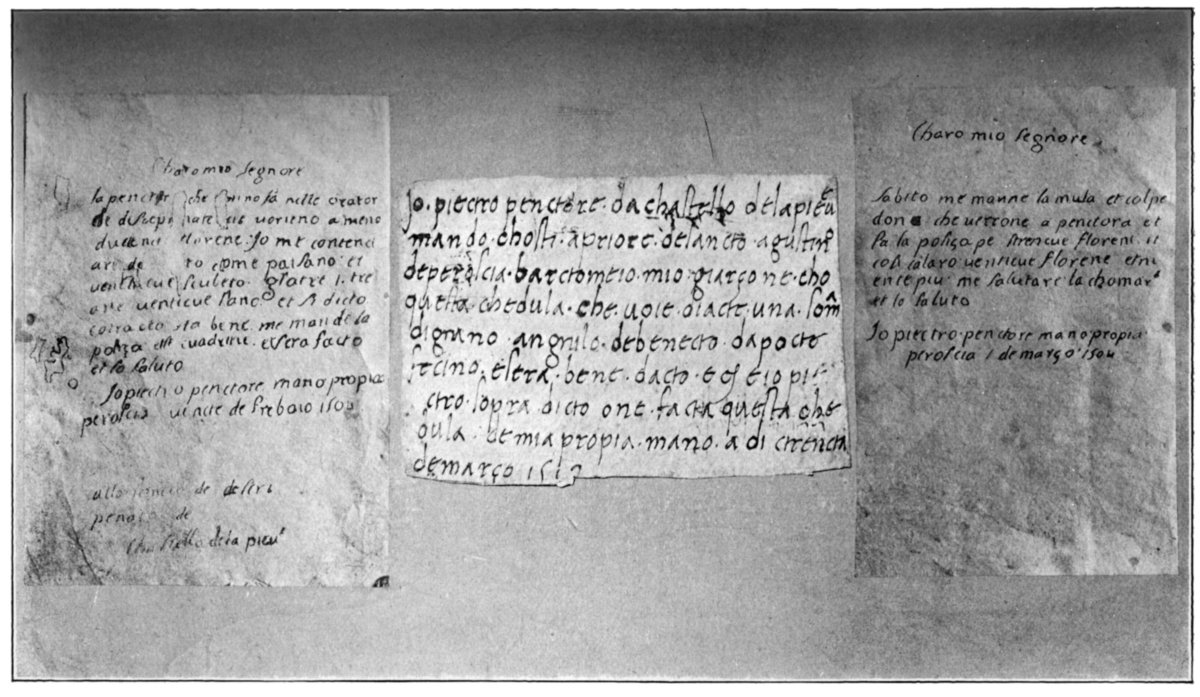 Charo mio segnore
la penctor che si no fa nelle orator
de disept nare cie vorieno a meno
ducenci florene. Jo me contenci
to come paisano: et
venticue subeto
ane venticue sanc et si dicto
contracto sta bene. me mande la
poliza
et lo saluto
Jo piectro penctore mano propia
peroscia vincte de frebaio 1504
de deseri
de
Chastello dela pieve
Jo. piectro penctore. da chastello dela pieve
mando. chosti. apriore. de sancto agustino
de peroscia. barctomeio. mio. giarçone. cho
questa chedula. che. voie. diacte. una. soma
di grano. angnilo. de benecto. da pocte
secino. e sera. bene. dacto. e cosi e io pie
ctro. sopra dicto one. facta questa che
dula. de mia propia. mano. a di ctrencta
de março 1512
Charo mio segnore
Sabito me manne la mula et colpe
done che verrone a penctora et
fa la poliça pe ctrencue florene. et
cosi calaro venticue florene et ni
ente piu. me salutare la chomare
et lo saluto
Jo piectro penctore mano propia
peroscia 1 de março 1504